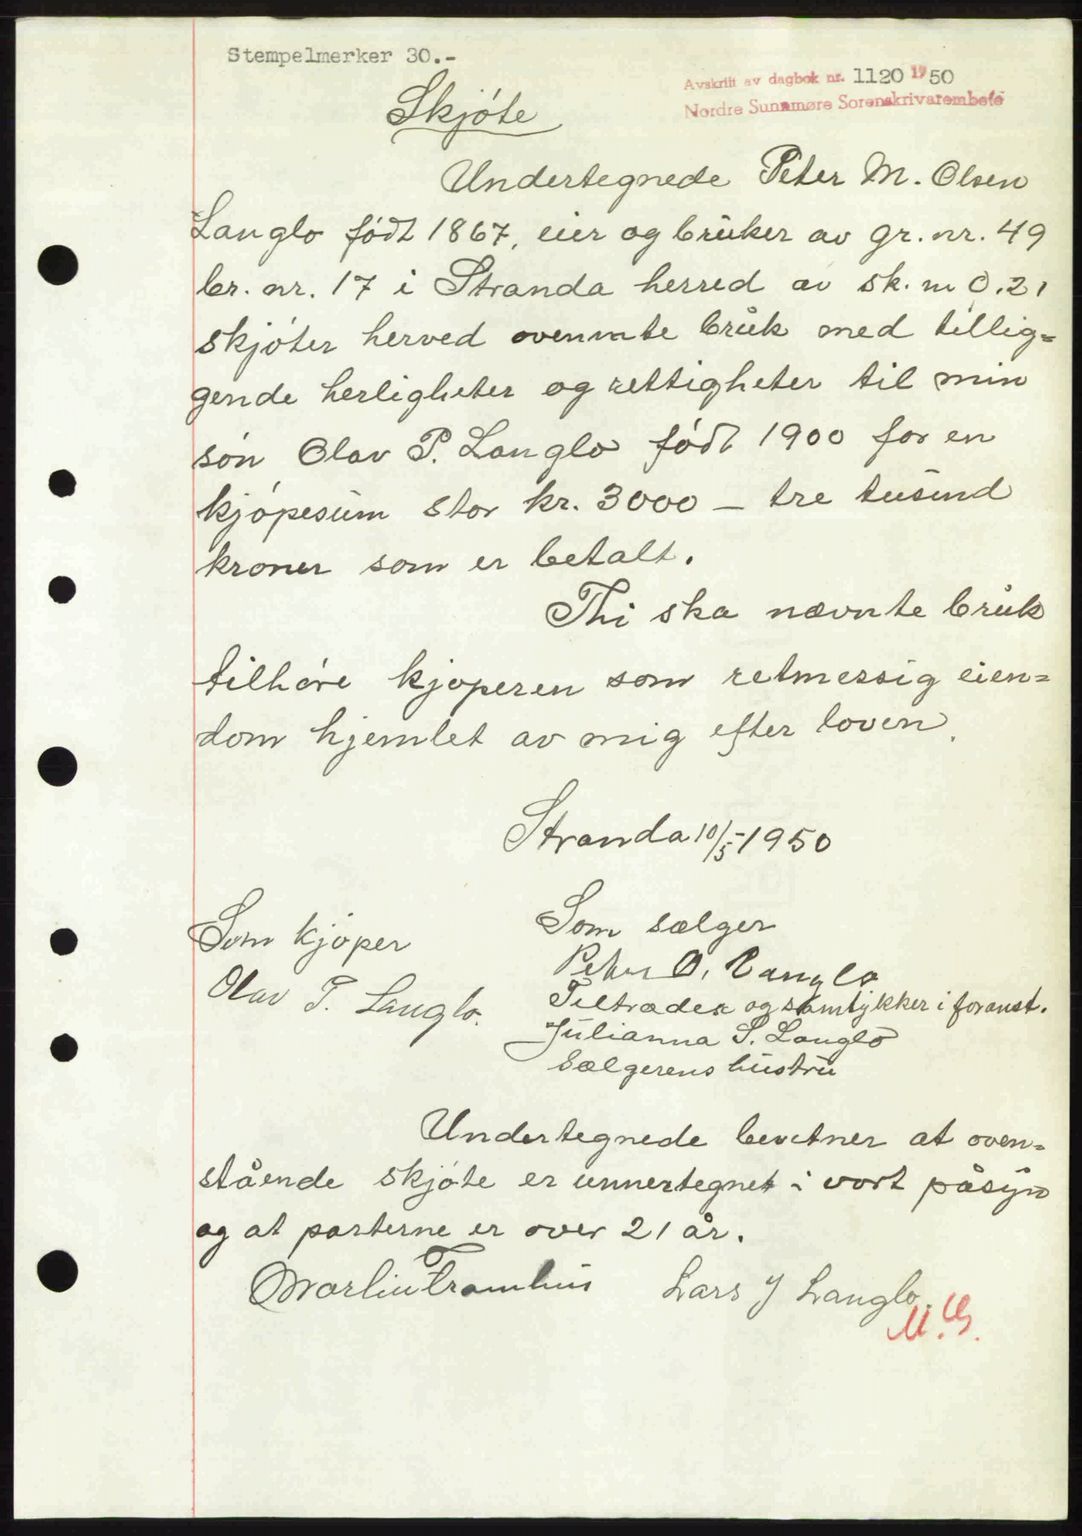 Stempelmerker 30.-
Avskrift av dagbok nr. 1120 1950
Nordre Sunnmøre Sorenskrivarembete
Skjøte
Undertegnede Peter M. Olsen
Langlo født 1867, eier og bruker av gr. nr. 49
br. nr. 17 i Stranda herred av sk. m 0.21
skjøter herved ovennvnte bruk med tillig=
gende herligheter og rettigheter til min
søn Olav P. Langlo født 1900 for en
kjøpesum stor kr. 3000 – tre tusind
kroner som er betalt.
Thi ska nævnte bruk
tilhøre kjøperen som retmessig eien=
dom hjemlet av mig efter loven.
Stranda 10/5-1950
Som kjøper
Som sælger
Olav P. Langlo.
Peter O. Langlo
Tiltræder og samtykker i foranst.
Julianna S. Langlo
Sælgerens hustru
Undertegnede bevitner at oven=
stående skjøte er unnertegnet i vort påsyn
og at parterne er over 21 år.
Lars J Langlo.
M.G.